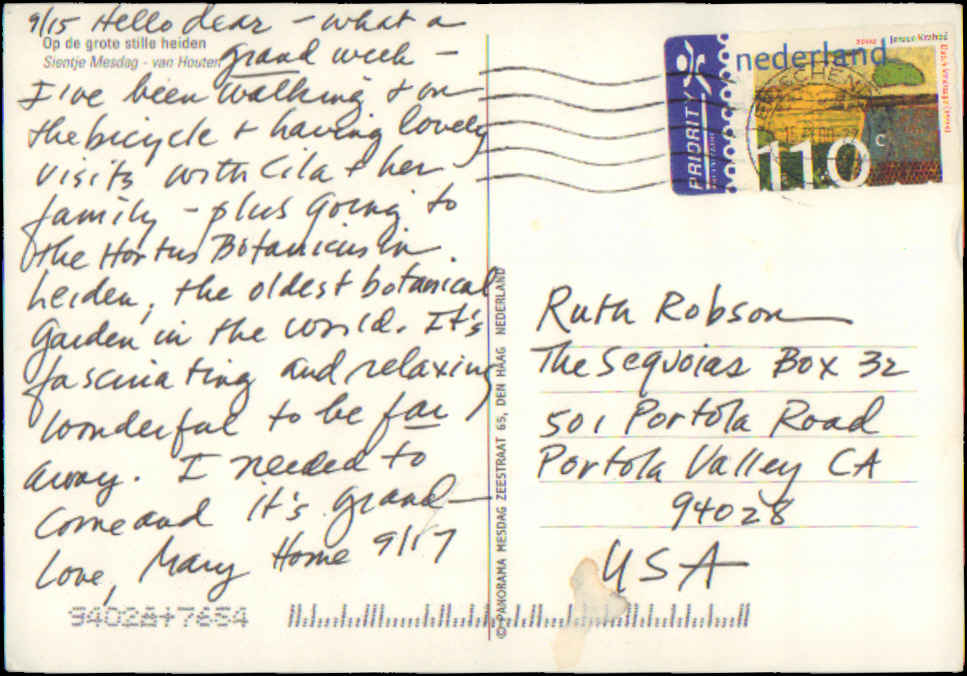 9/15 Hello dear - what a
Op de grote stille heiden
Sientje Mesdag - van Houten
grand week -
I've been walking & on
the bicycle & having lovely
visits with Cila & her
family - plus going to
the Hortus Botanicus in
Leiden, the oldest botanical
Garden in the world. It's
fascinating and relaxing,
wonderful to be far
away. I needed to
come and it's grand -
Love, Mary Home 9/17
94028+7654
© PANORAMA MESDAG ZEESTRAAT 65, DEN HAAG NEDERLAND
PRIORITY
nederland
110 c
Ruth Robson
The Sequoias Box 32
501 Portola Road
Portola Valley CA
94028
USA